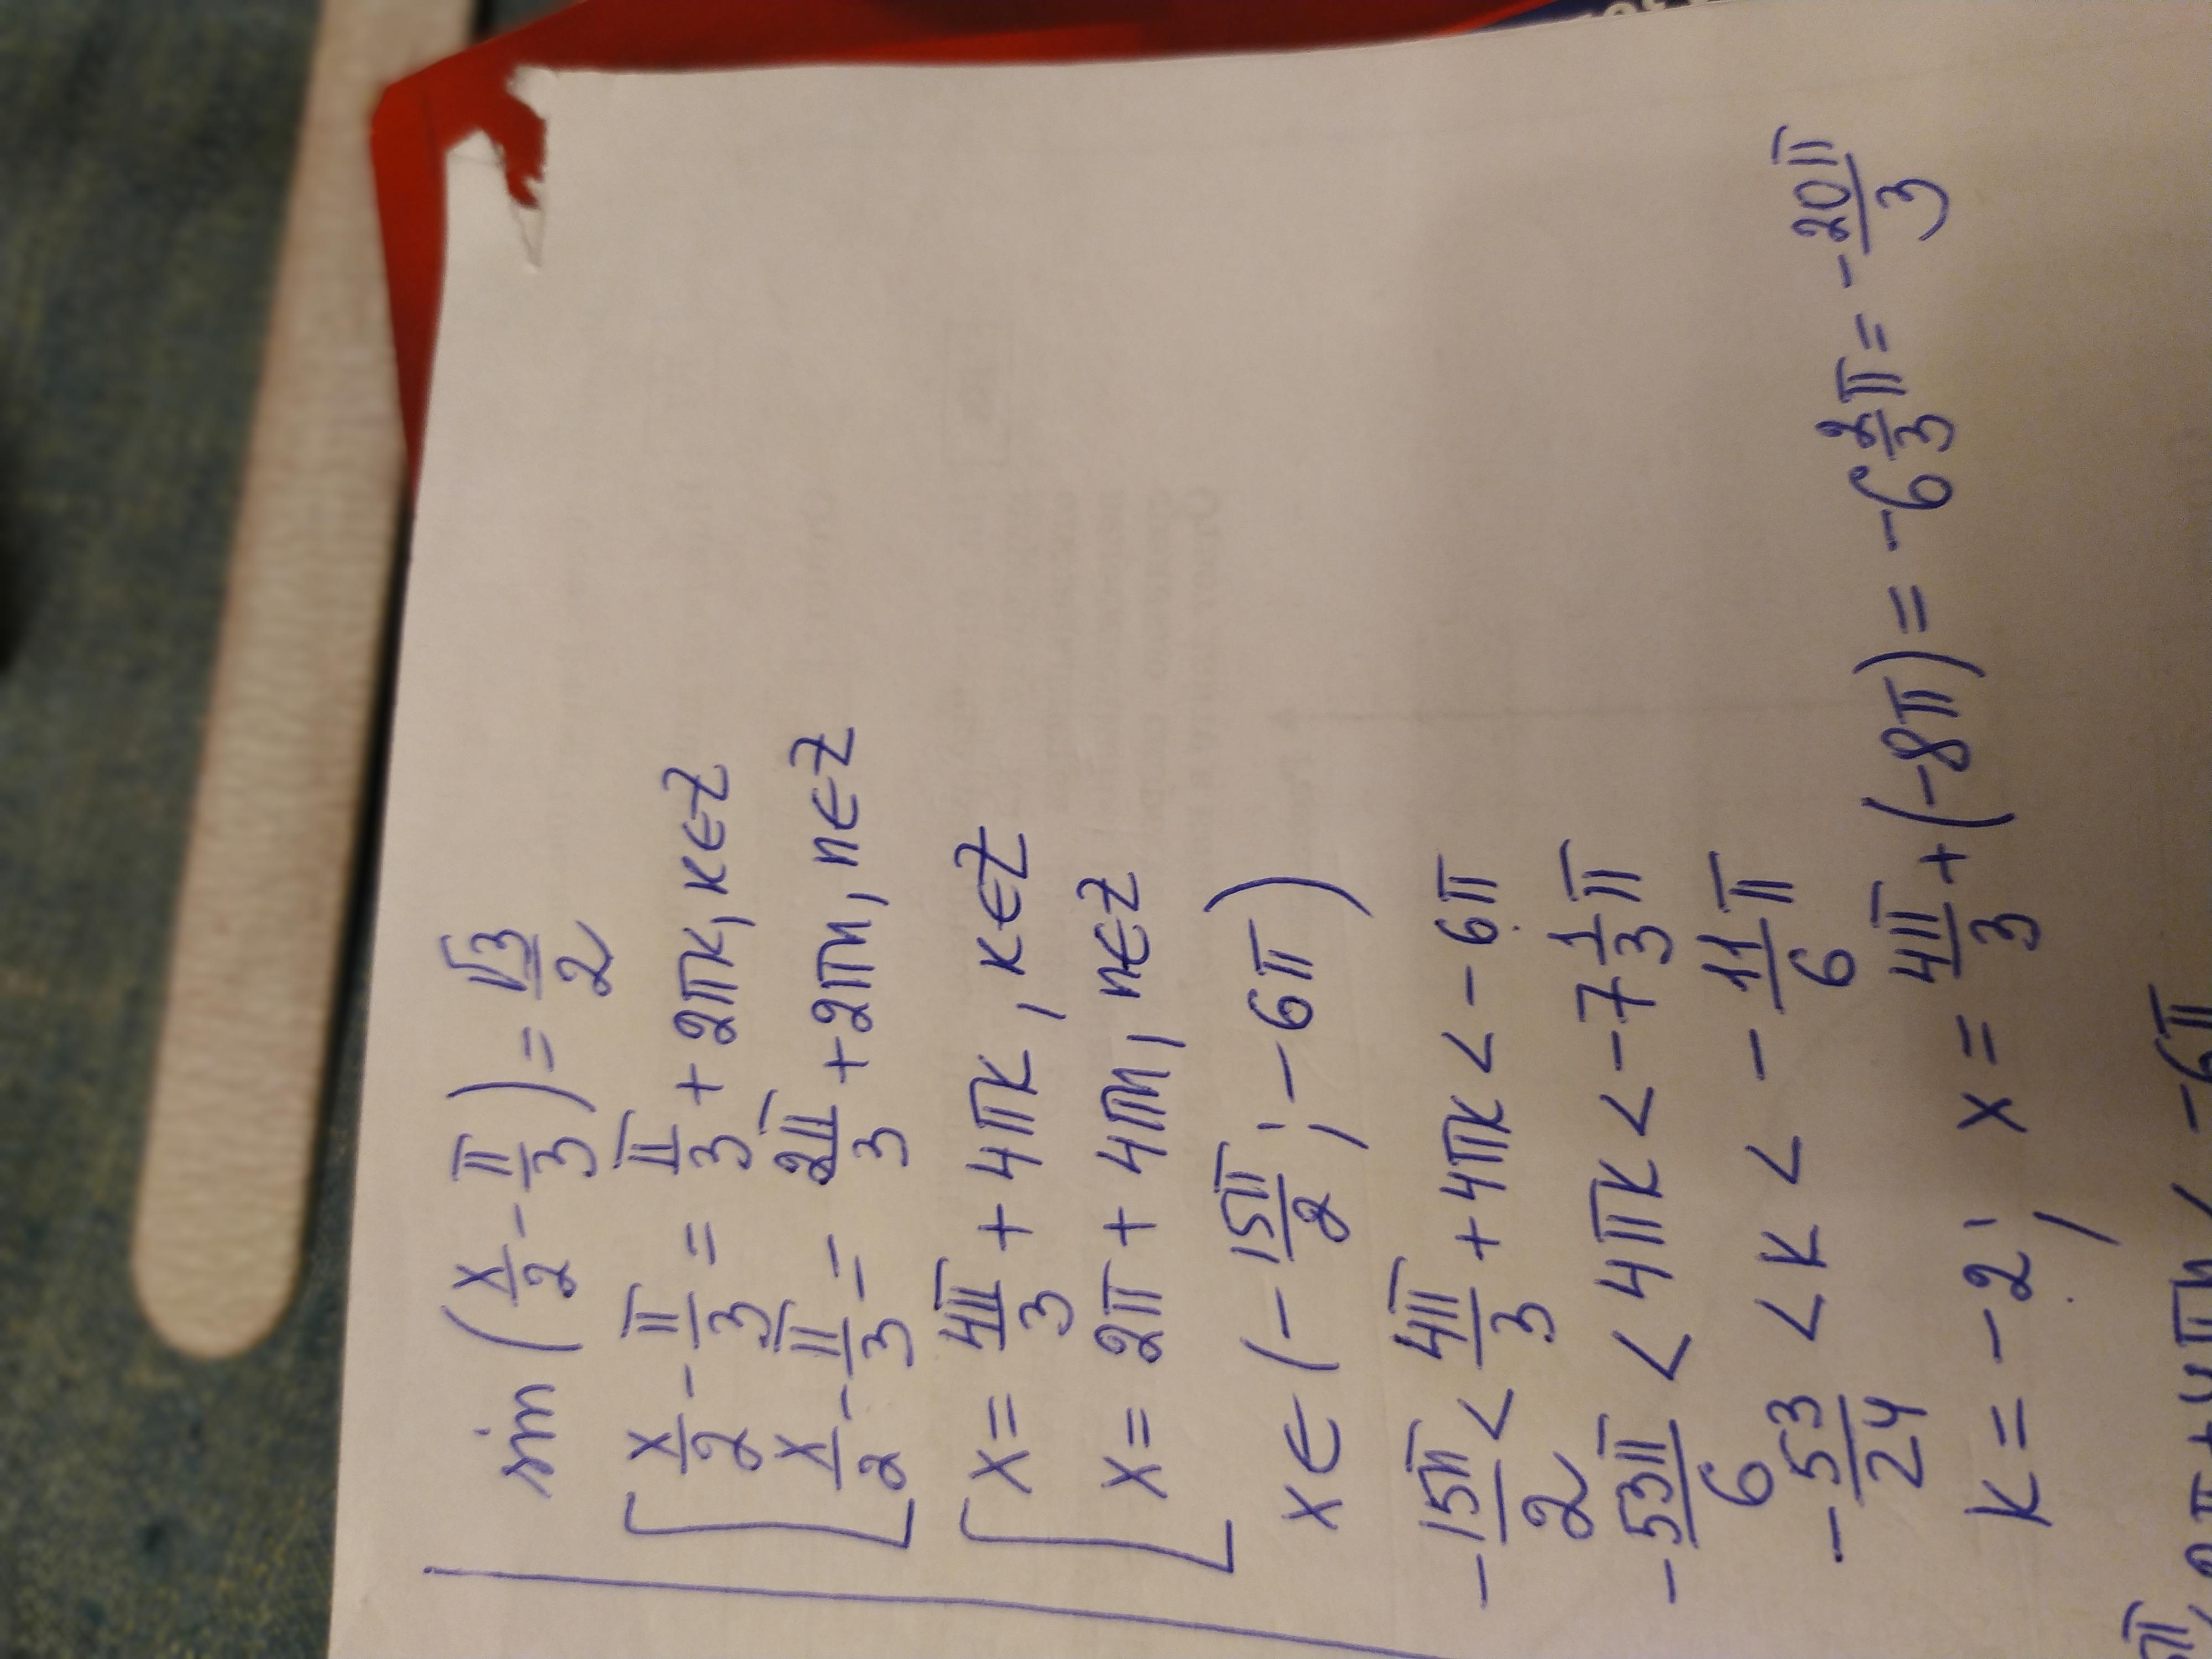 sin(x/2 - π/3) = √3/2
[ x/2 - π/3 = π/3 + 2πk, k∈Z
x/2 - π/3 = 2π/3 + 2πn, n∈Z
[ x = 4π/3 + 4πk, k∈Z
x = 2π + 4πn, n∈Z
x ∈ (-15π/2; -6π)
-15π/2 < 4π/3 + 4πk < -6π
-53π/6 < 4πk < -7 1/3 π
-53/24 < k < -11/6 π
k = -2; x = 4π/3 + (-8π) = -6 2/3 π = -20π/3